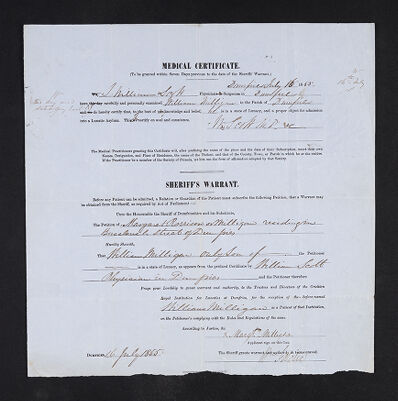 MEDICAL CERTIFICATE.
(To be granted within Seven Days previous to the date of the Sheriff Warrant.)
Dumfries July 16 1855.
I William Scott Physician in Dumfries
have this day carefully and personally examined William Milligan in the Parish of Dumfries
and do hereby certify that, to the best of my knowledge and belief, he is in a state of Lunacy, and a proper object for admission
into a Lunatic Asylum. This I certify on soul and conscience.
Wm Scott M.D.
16th July
The Medical Practitioners granting this Certificate will, after prefixing the name of the place and the date of their Subscription, insert their own
Names, Designation, and Place of Residence, the name of the Patient, and that of the County, Town, or Parish in which he or she resides.
SHERIFF'S WARRANT.
Before any Patient can be admitted, a Relation or Guardian of the Patient must subscribe the following Petition, that a Warrant may
be obtained from the Sheriff, as required by Act of Parliament:—
Unto the Honourable the Sheriff of Dumfriesshire and his Substitutes,
The Petition of Margaret Rorrison or Milligan residing in
Buccleuch Street of Dumfries
Humbly Sheweth,
That William Milligan only Son of the Petitioner
is in a state of Lunacy, as appears from the prefixed Certificate by William Scott
Physician in Dumfries and the Petitioner therefore
Prays your Lordship to grant warrant and authority, to the Trustees and Directors of the Crichton
Royal Institution for Lunatics at Dumfries, for the reception of the before-named
William Milligan as a Patient of that Institution,
on the Petitioner's complying with the Rules and Regulations of the same.
According to Justice, &c.
Applicant sign on this line.
The Sheriff grants warrant
Dumfries, 16 July 1855.